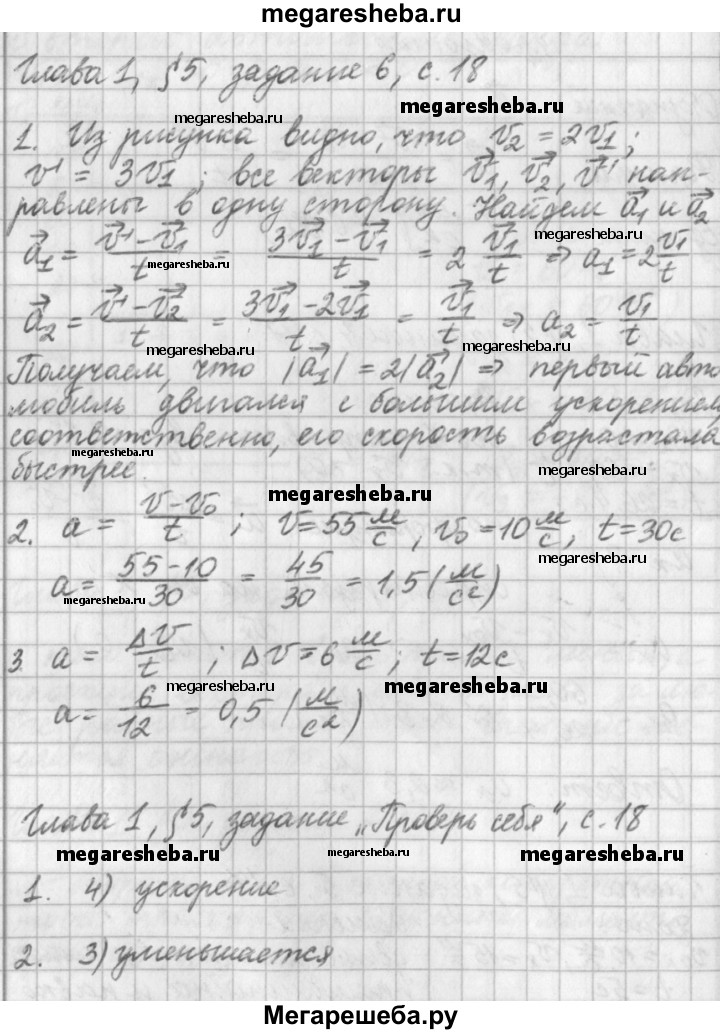 megaresheba.ru
Глава 1, §5, задание 6, с. 18
megaresheba.ru
megaresheba.ru
1. Из рисунка видно, что v₂ = 2v₁;
v' = 3v₁; все векторы v⃗₁, v⃗₂, v⃗' нап-
равлены в одну сторону. Найдем a⃗₁ и a⃗₂
megaresheba.ru
a⃗₁ = (v⃗' − v⃗₁)/t = (3v⃗₁ − v⃗₁)/t = 2 v⃗₁/t ⇒ a₁ = 2 v₁/t
megaresheba.ru
a⃗₂ = (v⃗' − v⃗₂)/t = (3v⃗₁ − 2v⃗₁)/t = v⃗₁/t ⇒ a₂ = v₁/t
megaresheba.ru
megaresheba.ru
Получаем, что |a⃗₁| = 2|a⃗₂| ⇒ первый авто
мобиль двигался с большим ускорением,
соответственно, его скорость возрастала
megaresheba.ru
быстрее.
megaresheba.ru
megaresheba.ru
2. a = (v − v₀)/t ; v = 55 м/с, v₀ = 10 м/с, t = 30с
megaresheba.ru
a = (55 − 10)/30 = 45/30 = 1,5 (м/с²)
megaresheba.ru
3 a = Δv/t ; Δv = 6 м/с ; t = 12с
megaresheba.ru
megaresheba.ru
a = 6/12 = 0,5 (м/с²)
Глава 1, §5, задание „Проверь себя“, с. 18
megaresheba.ru
megaresheba.ru
megaresheba.ru
1. 4) ускорение
2. 3) уменьшается
Мегарешеба.ру